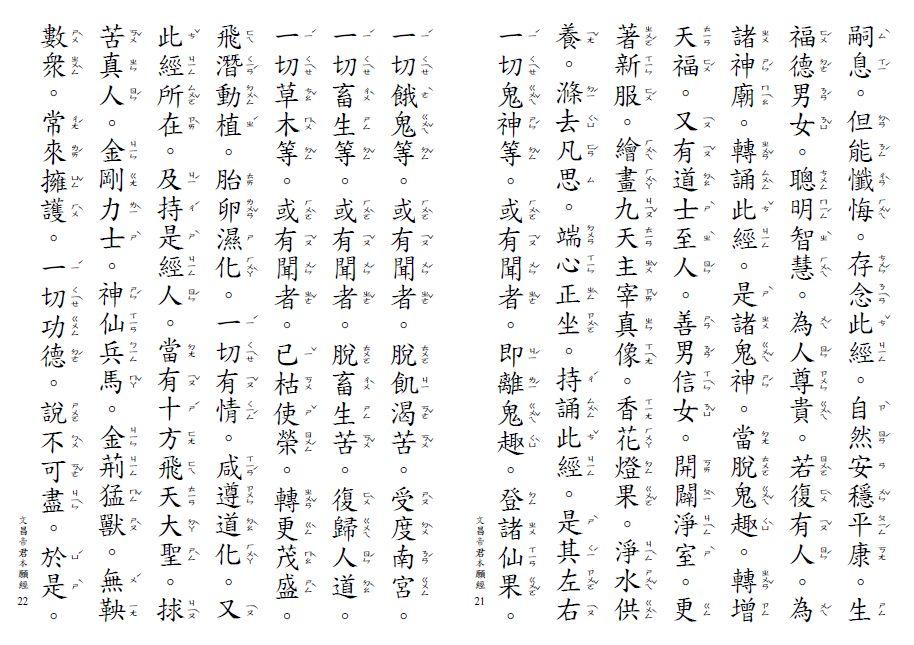 嗣息。但能懺悔。存念此經。自然安穩平康。生
福德男女。聰明智慧。為人尊貴。若復有人。為
諸神廟。轉誦此經。是諸鬼神。當脫鬼趣。轉增
天福。又有道士至人。善男信女。開闢淨室。更
著新服。繪畫九天主宰真像。香花燈果。淨水供
養。滌去凡思。端心正坐。持誦此經。是其左右
一切鬼神等。或有聞者。即離鬼趣。登諸仙果。
文昌帝君本願經 21
一切餓鬼等。或有聞者。脫飢渴苦。受度南宮。
一切畜生等。或有聞者。脫畜生苦。復歸人道。
一切草木等。或有聞者。已枯使榮。轉更茂盛。
飛潛動植。胎卵濕化。一切有情。咸遵道化。又
此經所在。及持是經人。當有十方飛天大聖。捄
苦真人。金剛力士。神仙兵馬。金荊猛獸。無鞅
數衆。常來擁護。一切功德。說不可盡。於是。
文昌帝君本願經 22